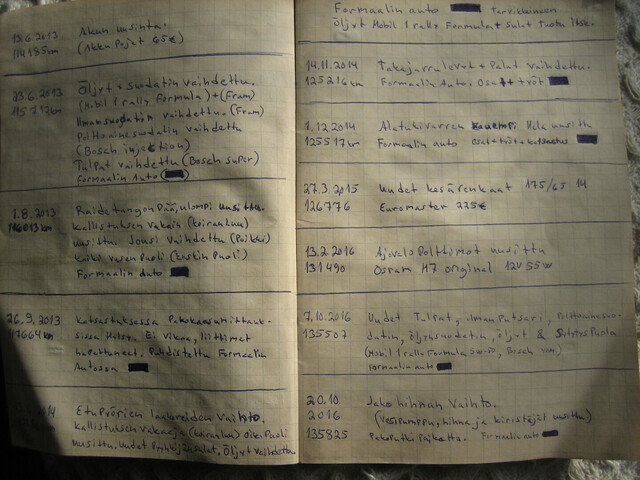 13.6.2013 Akun uusinta.
114185km (Akku Pojat 65€)
23.6.2013 Öljyt + Suodatin vaihdettu.
115712km (Mobil 1 rally Formula) + (Fram)
Ilmansuodatin vaihdettu (Fram)
Polttoainesuodatin vaihdettu
(Bosch injection)
Tulpat vaihdettu (Bosch super)
Formaalin Auto
1.8.2013 Raidetangon Pää, ulompi uusittu.
116013km kallistuksen vakaaja (koiranluu)
uusittu. Jousi vaihdettu (Poikki)
kaikki vasen Puoli
Formaalin Auto
26.9.2013 Katsastuksessa Pakokaasumittauk-
117664km sissa Häiriö. Ei vikaa, liittimet
hapettuneet. Puhdistettu Formaalin
Autossa
2014 Etupyörien laakereiden Vaihto.
kallistuksen vakaaja (koiranluu) oik. Puoli
uusittu. uudet Pyyhkijänsulat, Öljyt vaihdettu
Formaalin auto Tarvikkeineen
Öljyt Mobil 1 rally Formula + Sulat Tuotu itse.
14.11.2014 Takajarrulevyt + Palat vaihdettu.
125216km Formaalin Auto. Osat + työt
1.12.2014 Alatukivarren kauempi Hela uusittu
125517km Formaalin auto Osat + työt + katsastus
27.3.2015 Uudet kesärenkaat 175/65 14
126776 Euromaster 225€
13.2.2016 Ajovalo Polttimot uusittu
131490 Osram H7 original 12V 55W
7.10.2016 Uudet Tulpat, ilman Putsari, Polttoainesuo-
135507 datin, öljynsuodatin, öljyt &
(Mobil 1 rally Formula 5w-50, Bosch
Formaalin auto
20.10. Jakohihnan Vaihto.
2016 (Vesipumppu, hihna ja kiristäjät uusittu)
135825 Pakoputki Paikattu. Formaalin auto